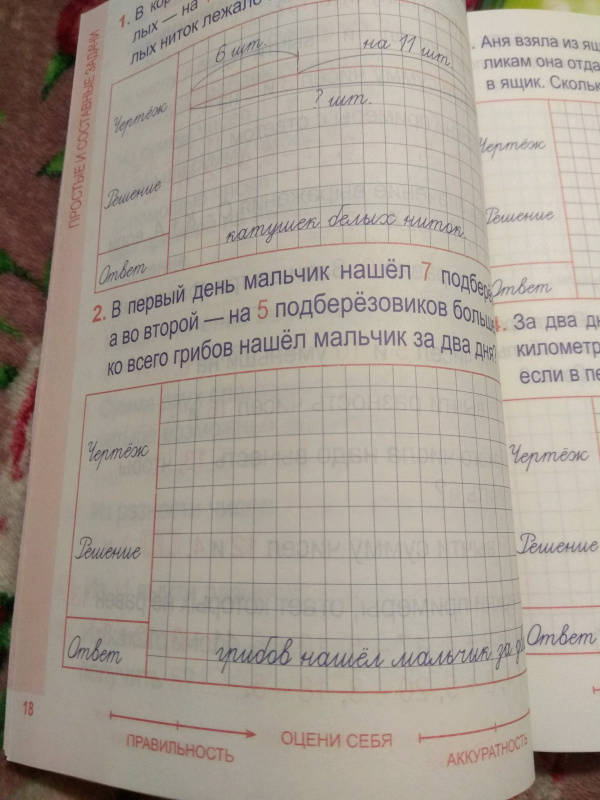 ПРОСТЫЕ И СОСТАВНЫЕ ЗАДАЧИ
1. В
лых — на
лых ниток лежало
6 шт.
на 11 шт.
? шт.
Чертёж
Решение
катушек белых ниток.
Ответ
2. В первый день мальчик нашёл 7 подберё
а во второй — на 5 подберёзовиков больше
ко всего грибов нашёл мальчик за два дня?
Чертёж
Решение
Ответ
грибов нашёл мальчик за д
18
ПРАВИЛЬНОСТЬ
ОЦЕНИ СЕБЯ
АККУРАТНОСТЬ
. Аня взяла из ящ
ликам она отда
в ящик. Скольк
Чертёж
Решение
Ответ
4. За два дн
километр
если в пе
Чертёж
Решение
Ответ